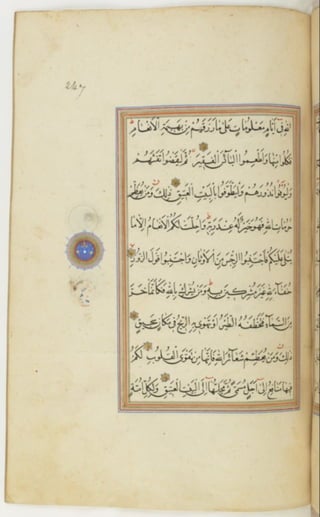 247
الله فى أيام معلومات على ما رزقهم من بهيمة الأنعام
فكلوا منها وأطعموا البائس الفقير ثم ليقضوا تفثهم
وليوفوا نذورهم وليطوفوا بالبيت العتيق ذلك ومن يعظم
حرمات الله فهو خير له عند ربه وأحلت لكم الأنعام إلا ما
يتلى عليكم فاجتنبوا الرجس من الأوثان واجتنبوا قول الزور
حنفاء لله غير مشركين به ومن يشرك بالله فكأنما خر
من السماء فتخطفه الطير أو تهوى به الريح فى مكان سحيق
ذلك ومن يعظم شعائر الله فإنها من تقوى القلوب لكم
فيها منافع إلى أجل مسمى ثم محلها إلى البيت العتيق ولكل أمة